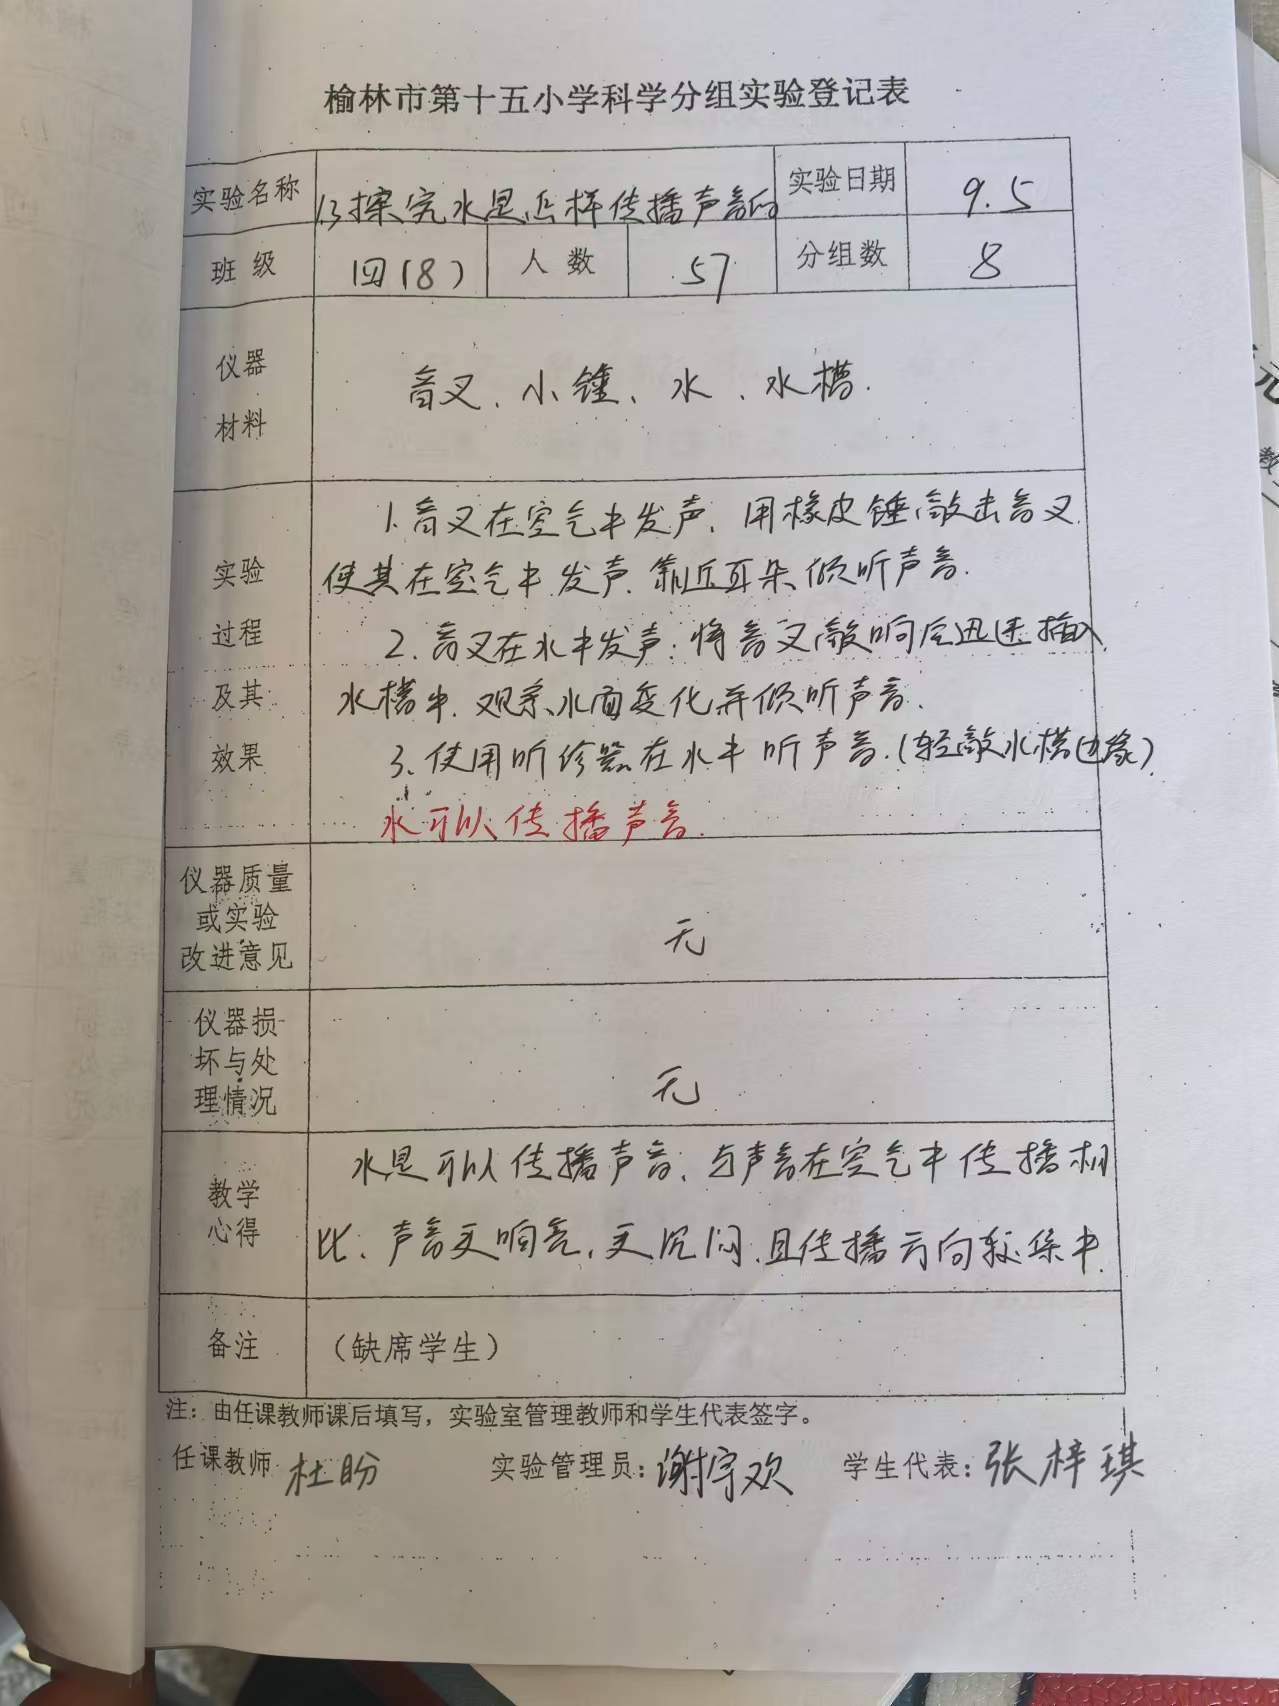 榆林市第十五小学科学分组实验登记表
实验名称 1.3探究水是怎样传播声音的 实验日期 9.5
班级 四(8) 人数 57 分组数 8
仪器
材料
音叉、小锤、水、水槽.
实验
过程
及其
效果
1.音叉在空气中发声,用橡皮锤敲击音叉
使其在空气中发声,靠近耳朵倾听声音.
2.音叉在水中发声:将音叉敲响后迅速插入
水槽中,观察水面变化并倾听声音.
3.使用听诊器在水中听声音.(轻敲水槽边缘)
水可以传播声音.
仪器质量
或实验
改进意见
无
仪器损
坏与处
理情况
无
教学
心得
水是可以传播声音,与声音在空气中传播相
比,声音更响亮,更沉闷,且传播方向较集中.
备注 (缺席学生)
注:由任课教师课后填写,实验室管理教师和学生代表签字。
任课教师 杜盼 实验管理员:谢宇欢 学生代表:张梓琪